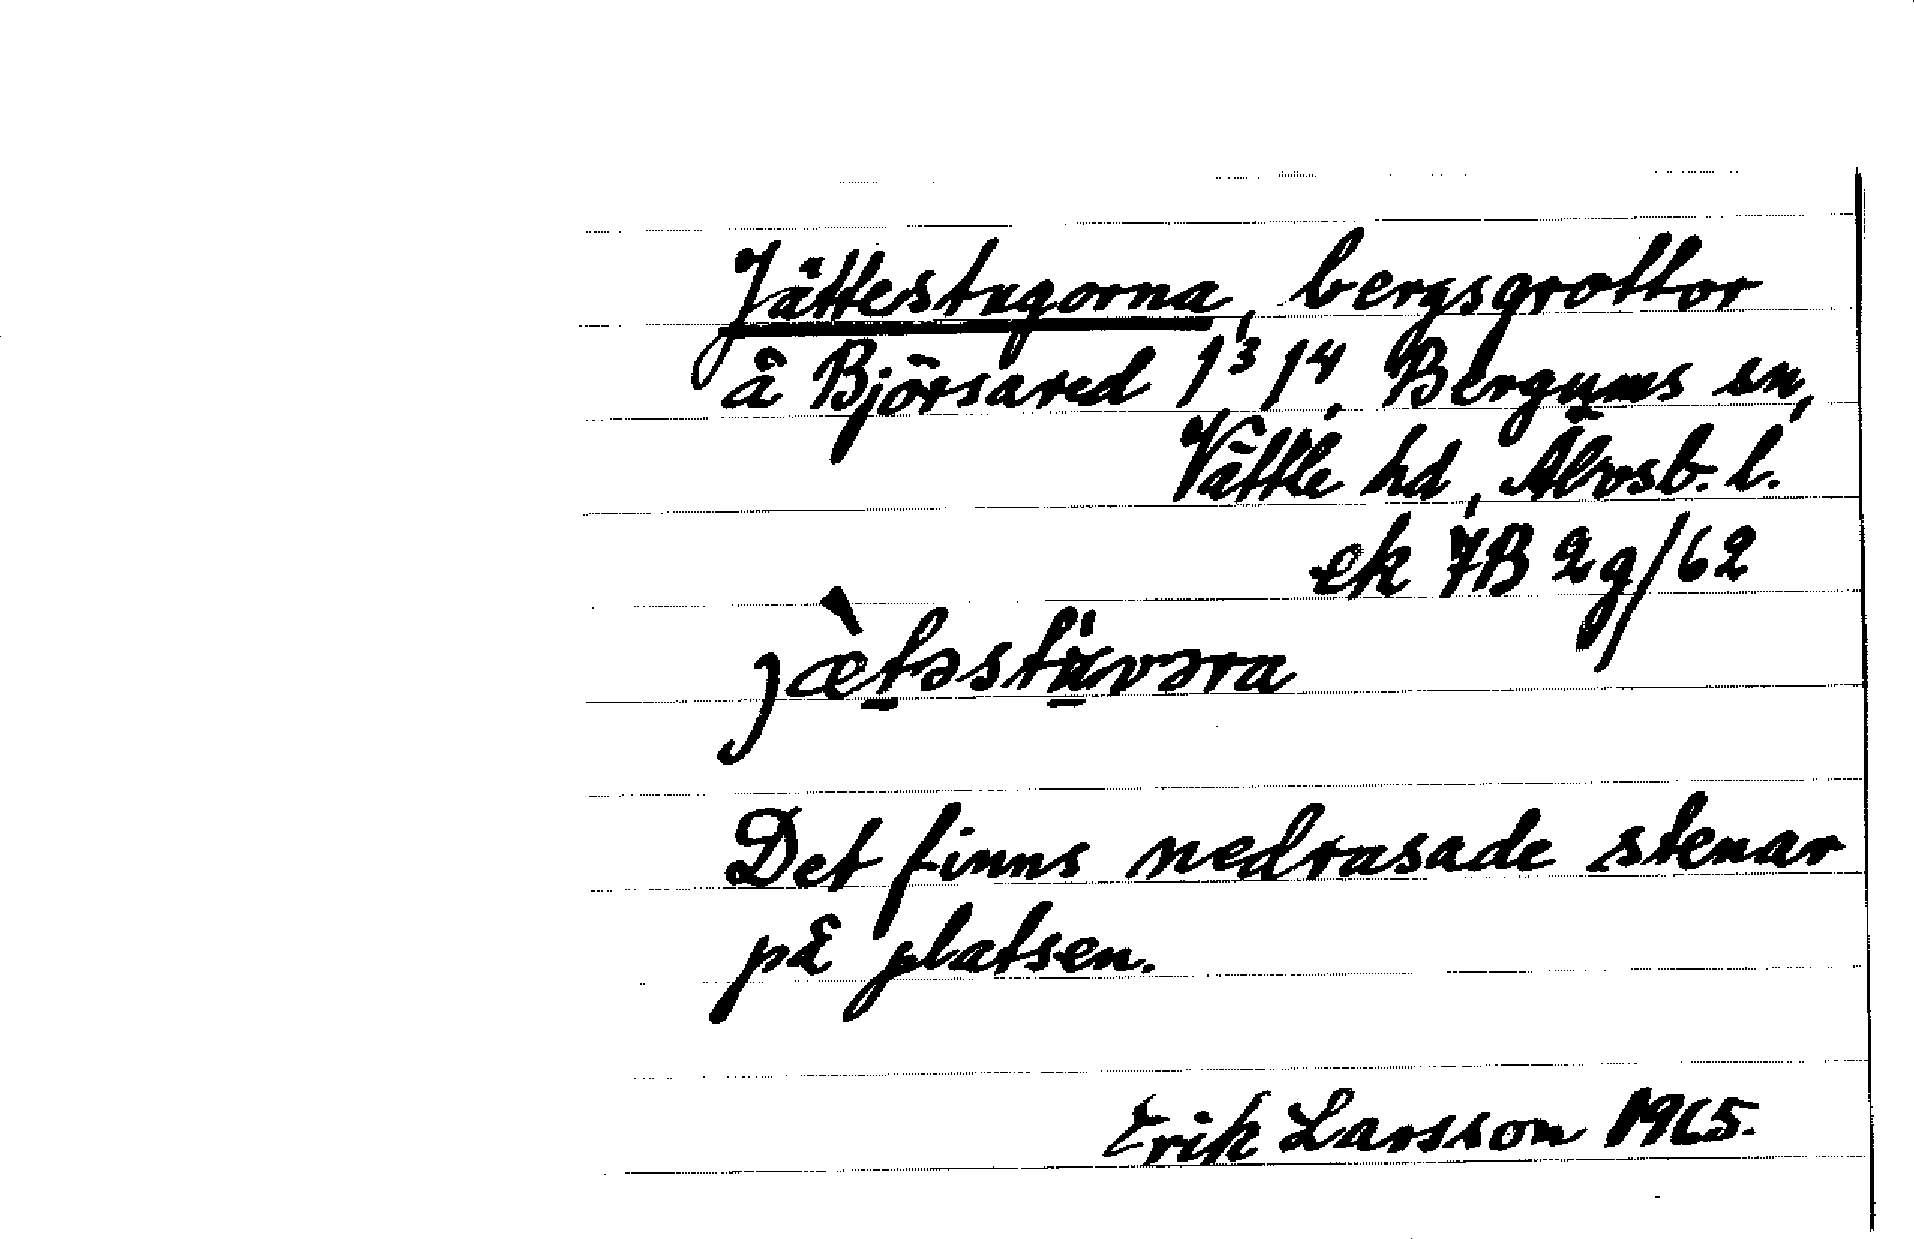 Jättestugorna, bergsgrottor
å Björsared 1³ 1⁴, Bergums sn,
Vättle hd, Älvsb. l.
ek 7B 2g/62
jæ̀t̠əstu̠̇vəra
Det finns nedrasade stenar
på platsen.
Erik Larsson 1965.